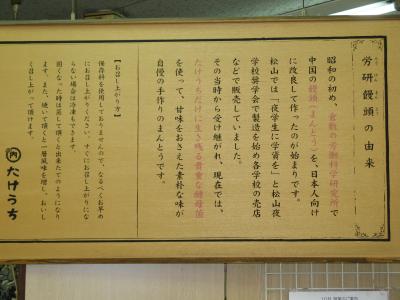 労研饅頭の由来
昭和の初め、倉敷の労働科学研究所で
中国の饅頭(まんとう)を、日本人向け
に改良して作ったのが始まりです。
松山では「夜学生に学資を」と松山夜
学校奨学会で製造を始め各学校の売店
などで販売していました。
その当時から受け継がれ、現在では、
たけうちだけに生き残る貴重な酵母菌
を使って、甘味をおさえた素朴な味が
自慢の手作りのまんとうです。
【お召し上がり方】
保存料を使用しておりませんので、なるべくお早め
にお召し上がりください。すぐにお召し上がりにな
らない場合は冷凍もできます。
固くなった時は蒸して頂くと出来たてのようになり
ます。また、焼いて頂くと一層風味を増し、おいし
く召し上がって頂けます。
たけうち